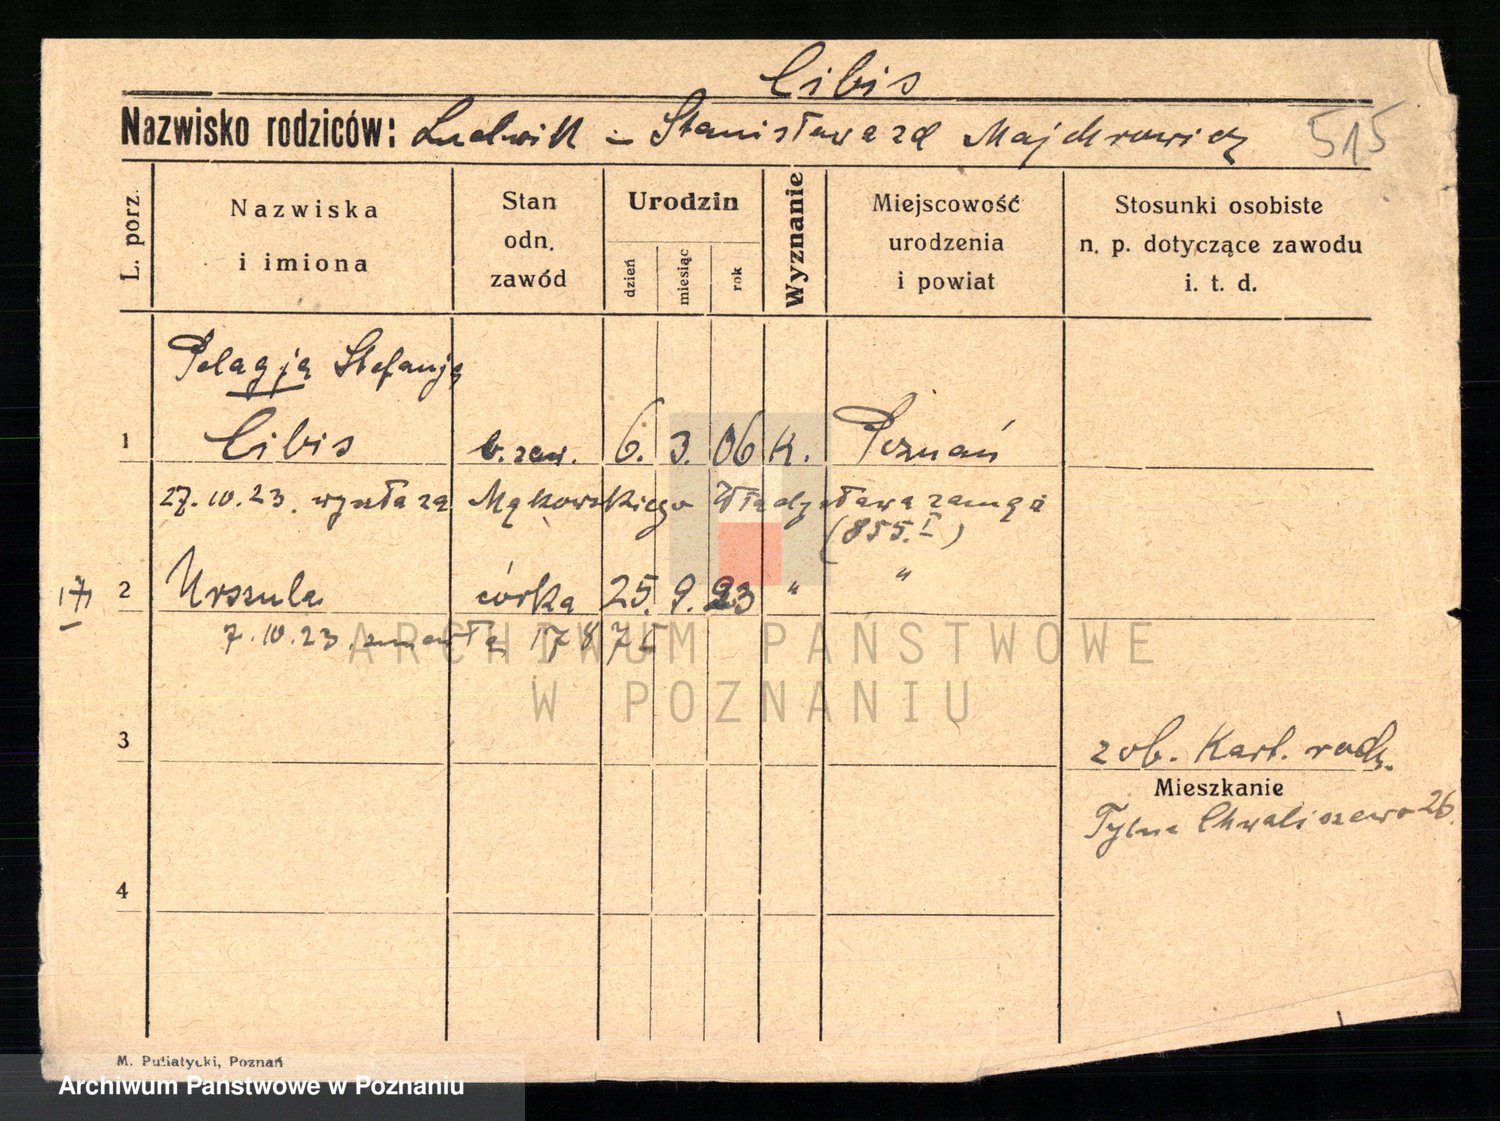 Cibis
Nazwisko rodziców: Ludwik – Stanisława zd Majchrowicz 515
L. porz. Nazwiska i imiona Stan odn. zawód Urodzin dzień miesiąc rok Wyznanie Miejscowość urodzenia i powiat Stosunki osobiste n. p. dotyczące zawodu i. t. d.
Pelagją Stefanją
1 Cibis b. zaw. 6. 3. 06 K. Poznań
27.10.23. wyszła za Mąkowskiego Władysława zamąż
(855.I)
17 2 Urszula córka 25. 9. 23 " "
7.10.23. zmarła 178
ARCHIWUM PAŃSTWOWE
W POZNANIU
3 zob. Kart. rodz.
Mieszkanie
Tylne Chwaliszewo 26.
4
M. Putiatycki, Poznań
Archiwum Państwowe w Poznaniu